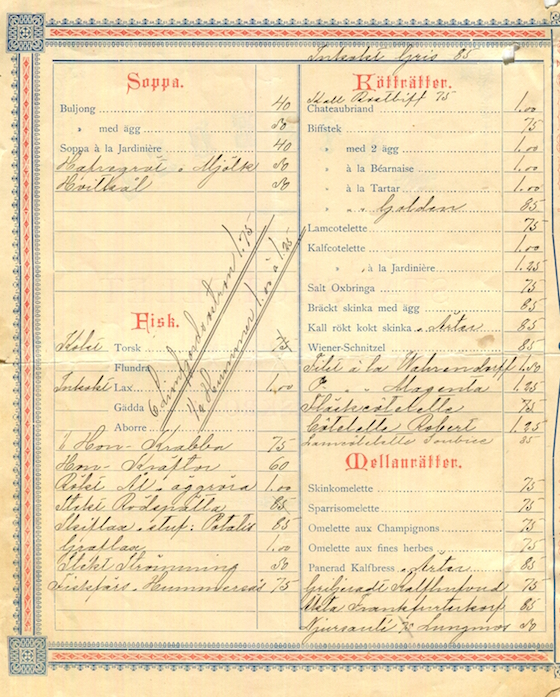 Inkokt Gris 85
Soppa.
Buljong 40
" med ägg 50
Soppa à la Jardinière 40
Hafregröt o Mjölk 50
Hvitkål 50
6 Limfjordsostron 1.75
½ Hummer 1.00 à 1.25
Fisk.
Kokt Torsk 75
Flundra
Inkokt Lax 1.00
Gädda
Aborre
1 Hon-Krabba 75
Hon-Kräftor 60
Rökt Ål, äggröra 1.00
Stekt Rödspätta 85
Skiflax, stuf: Potatis 85
Graflax 1.00
Stekt Strömming 50
Fiskfärs, Hummersås 75
Kötträtter.
Kall Rostbiff 75
Chateaubriand 1.00
Biffstek 75
" med 2 ägg 1.00
" à la Béarnaise 1.00
" à la Tartar 1.00
" " 85
Lamcotelette 75
Kalfcotelette 1.00
" à la Jardinière 1.25
Salt Oxbringa 75
Bräckt skinka med ägg 85
Kall rökt kokt skinka, Ärtor 85
Wiener-Schnitzel 85
Filé à la Wahrendorff 1.50
D:o " " Magenda 1.25
Fläskcôtelette 75
Côtelette Robert 1.25
Lamcôtelette Soubise 85
Mellanrätter.
Skinkomelette 75
Sparrisomelette 75
Omelette aux Champignons 75
Omelette aux fines herbes 75
Panerad Kalfbress, Ärtor 85
Griljeradt Kalfhufvud 75
Äkta Frankfurterkorf 85
Njursauté 50